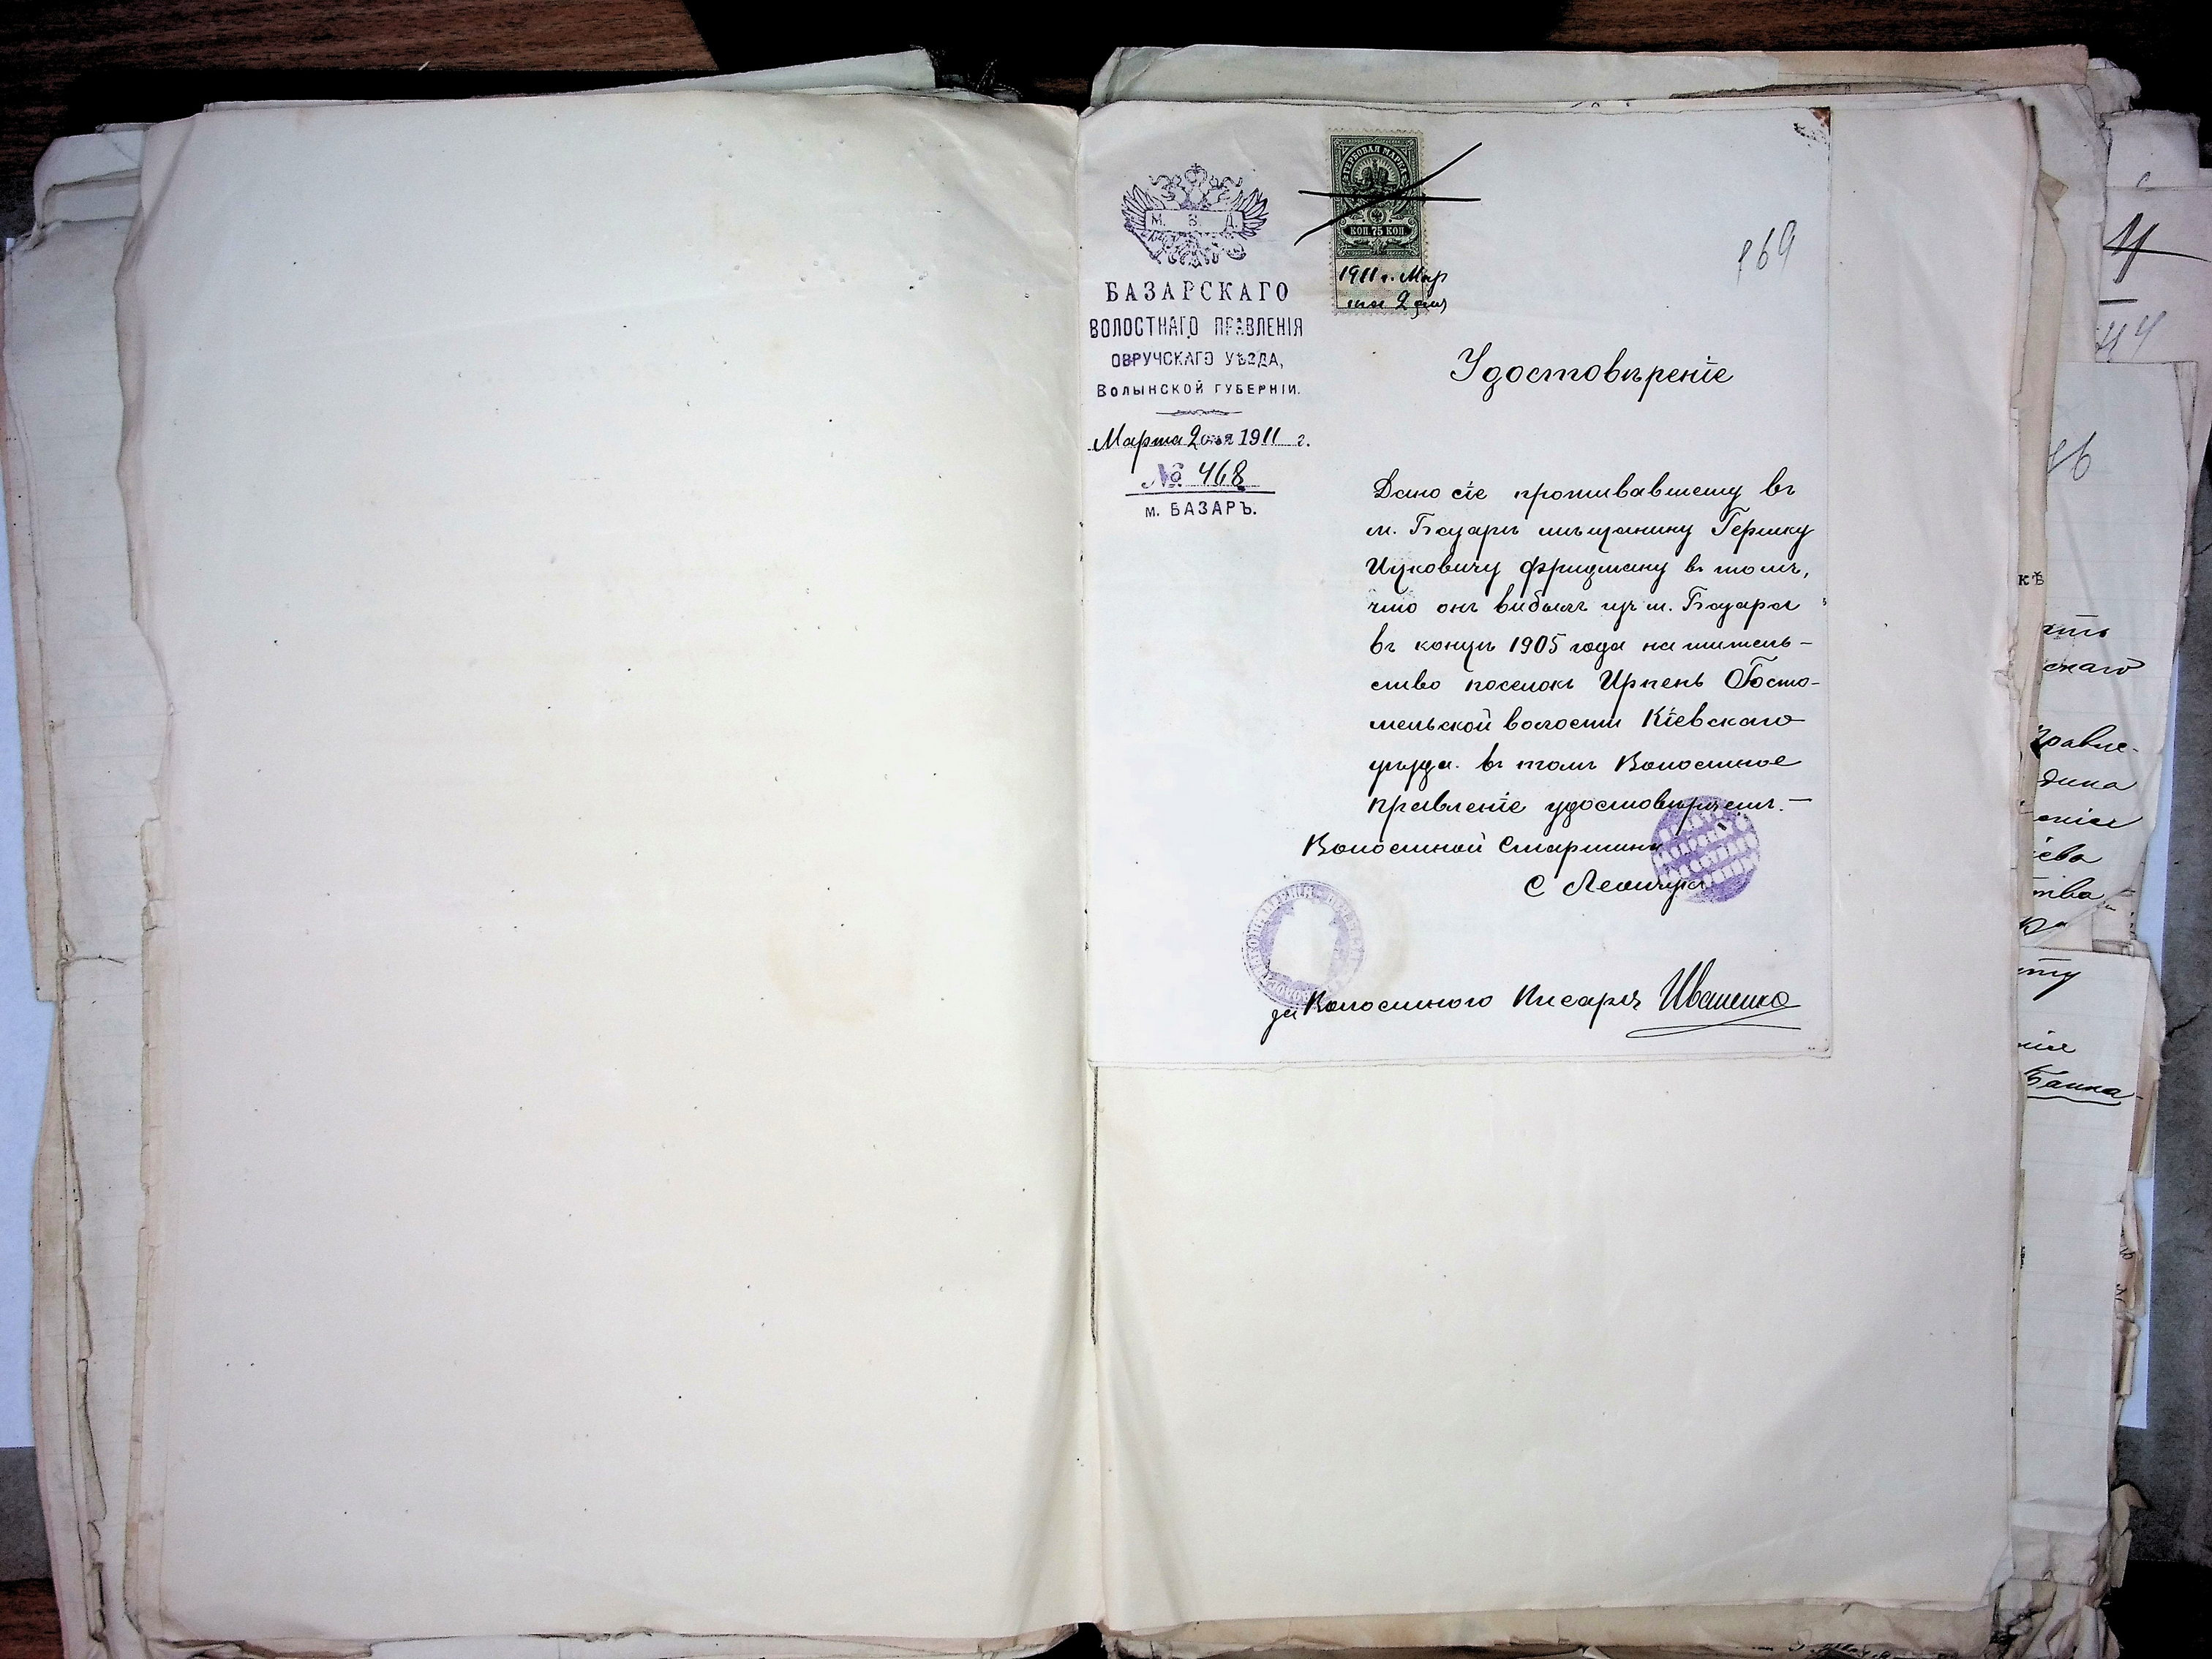 М. В. Д.
БАЗАРСКАГО
ВОЛОСТНАГО ПРАВЛЕНІЯ
ОВРУЧСКАГО УѢЗДА,
ВОЛЫНСКОЙ ГУБЕРНІИ.
Марта 2 дня 1911 г.
№ 468
м. БАЗАРЪ.
ГЕРБОВАЯ МАРКА
КОП. 75 КОП.
1911 г. Мар
та 2 дня
169
Удостовѣреніе
Дано сіе проживавшему въ
м. Базарѣ мѣщанину Гершку
Ицковичу Фридману въ томъ,
что онъ выбылъ изъ м. Базара
въ концѣ 1905 года на житель-
ство поселокъ Ирпень Госто-
мельской волости Кіевскаго
уѣзда. въ томъ Волостное
Правленіе удостовѣряетъ.—
Волостной Старшина
за Волостного Писаря Иваненко
кѣ
скаго
правле-
дина
енія
іева
ства
Банка